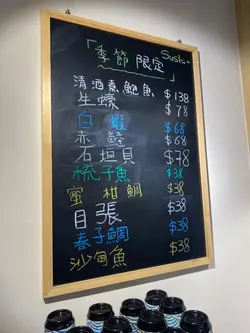 Sushi-
「季節 限定」
清酒煮鮑魚 $138
生蠔 $78
白 蝦 $68
赤 鯥 $68
石垣貝 $78
梳子魚 $38
蜜 柑鯛 $38
目張 $38
春子鯛 $38
沙甸魚 $38